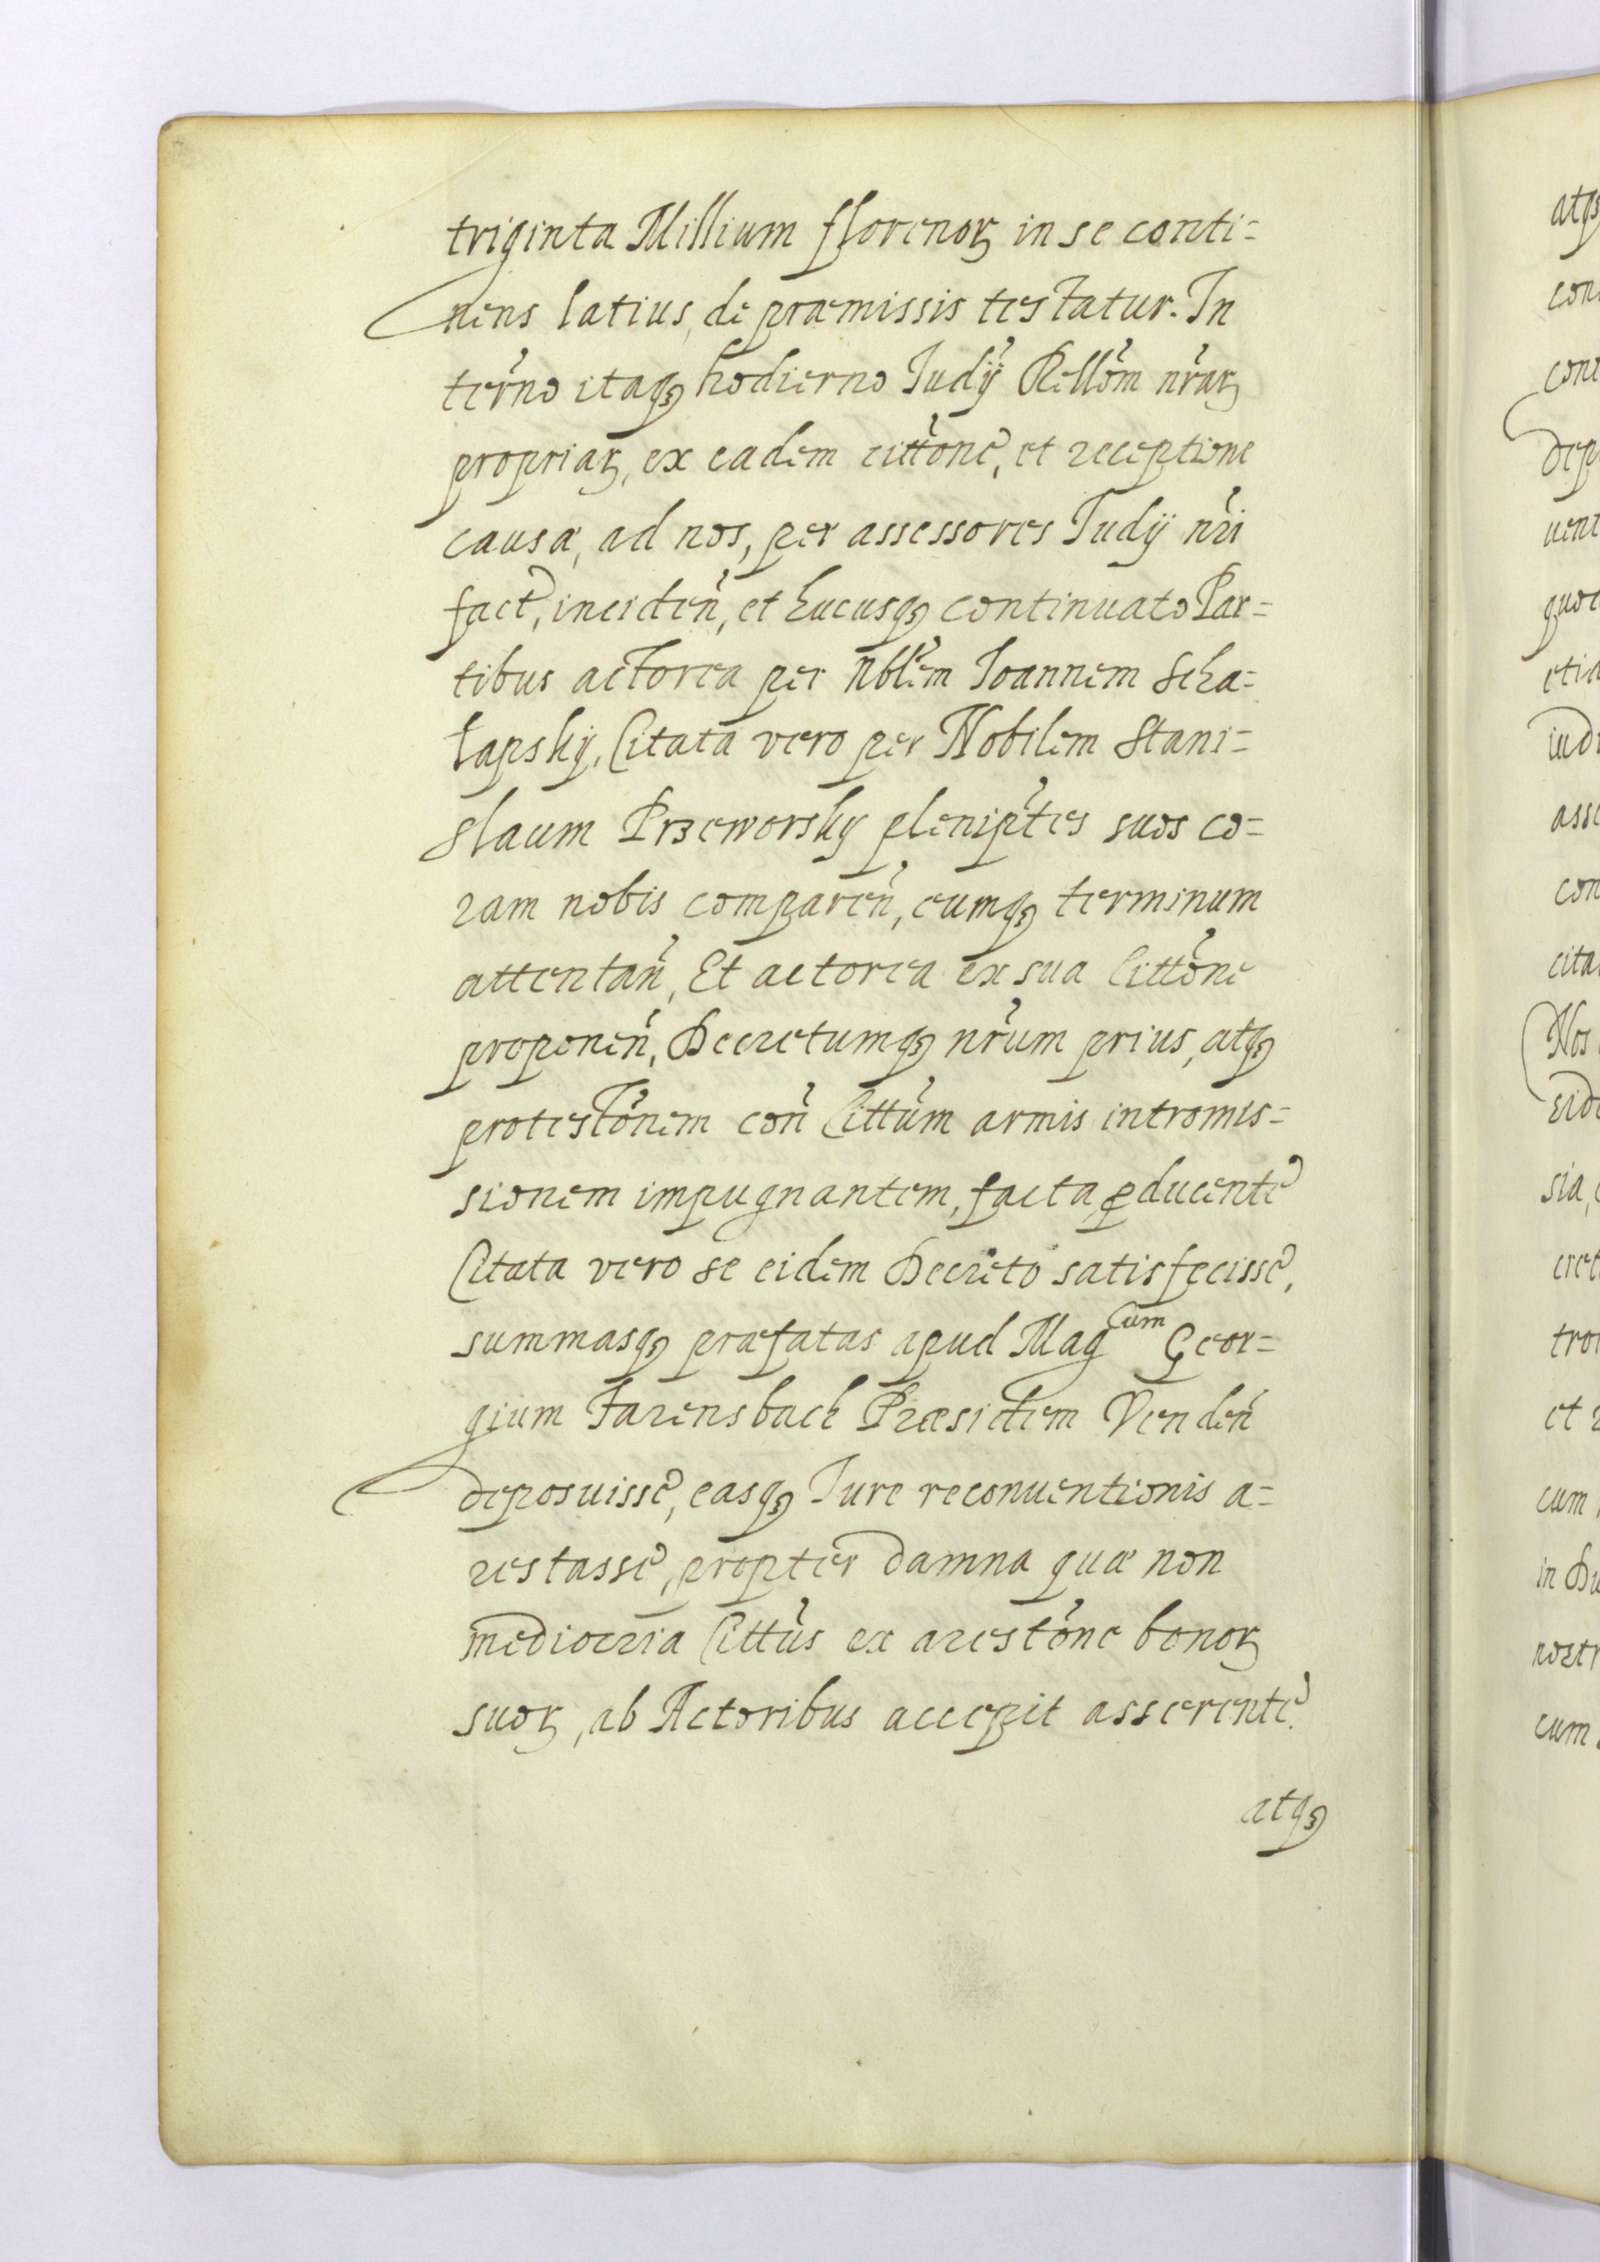 triginta Millium fflorenoꝝ in se conti=
nens latius, de præmissis testatur. In
term̃o itaqꝫ hodierno Iudÿ Rellõm nr̃aꝝ
propriaꝝ, ex eadem cittõne, et receptione
causæ, ad nos, per assessores Iudÿ nr̃i
fact̃, inciden̄, et hucusqꝫ continuato Par=
tibus actorea per Nbl̃em Ioannem Scha=
łapsky, Citata vero per Nobilem Stani=
slaum Przeworsky plenip̃tes suos co=
ram nobis comparen̄, eumqꝫ terminum
attentan̄, Et actorea ex sua Cittõne
proponen̄, Decretumqꝫ nr̃um prius, atqꝫ
protestõnem con̄ Cittũm armis intromis=
sionem impugnantem, facta, ꝓducente
Citata vero se eidem Decreto satisfecisse,
summasqꝫ præfatas apud Magcum Geor=
gium Farensbach Præsidem Venden̄
deposuisse, easqꝫ Iure reconuentionis a=
restasse, propter damna quæ non
mediocria Cittũs ex arestõne bonoꝝ
suoꝝ, ab Actoribus accepit asserente.
atqꝫ
atqꝫ
con
cont
dep
uent
quoc
etia
iudi
asse
con
cita
Nos
eide
sia,
cret
tro
et
cum
in Du
nostr
cum